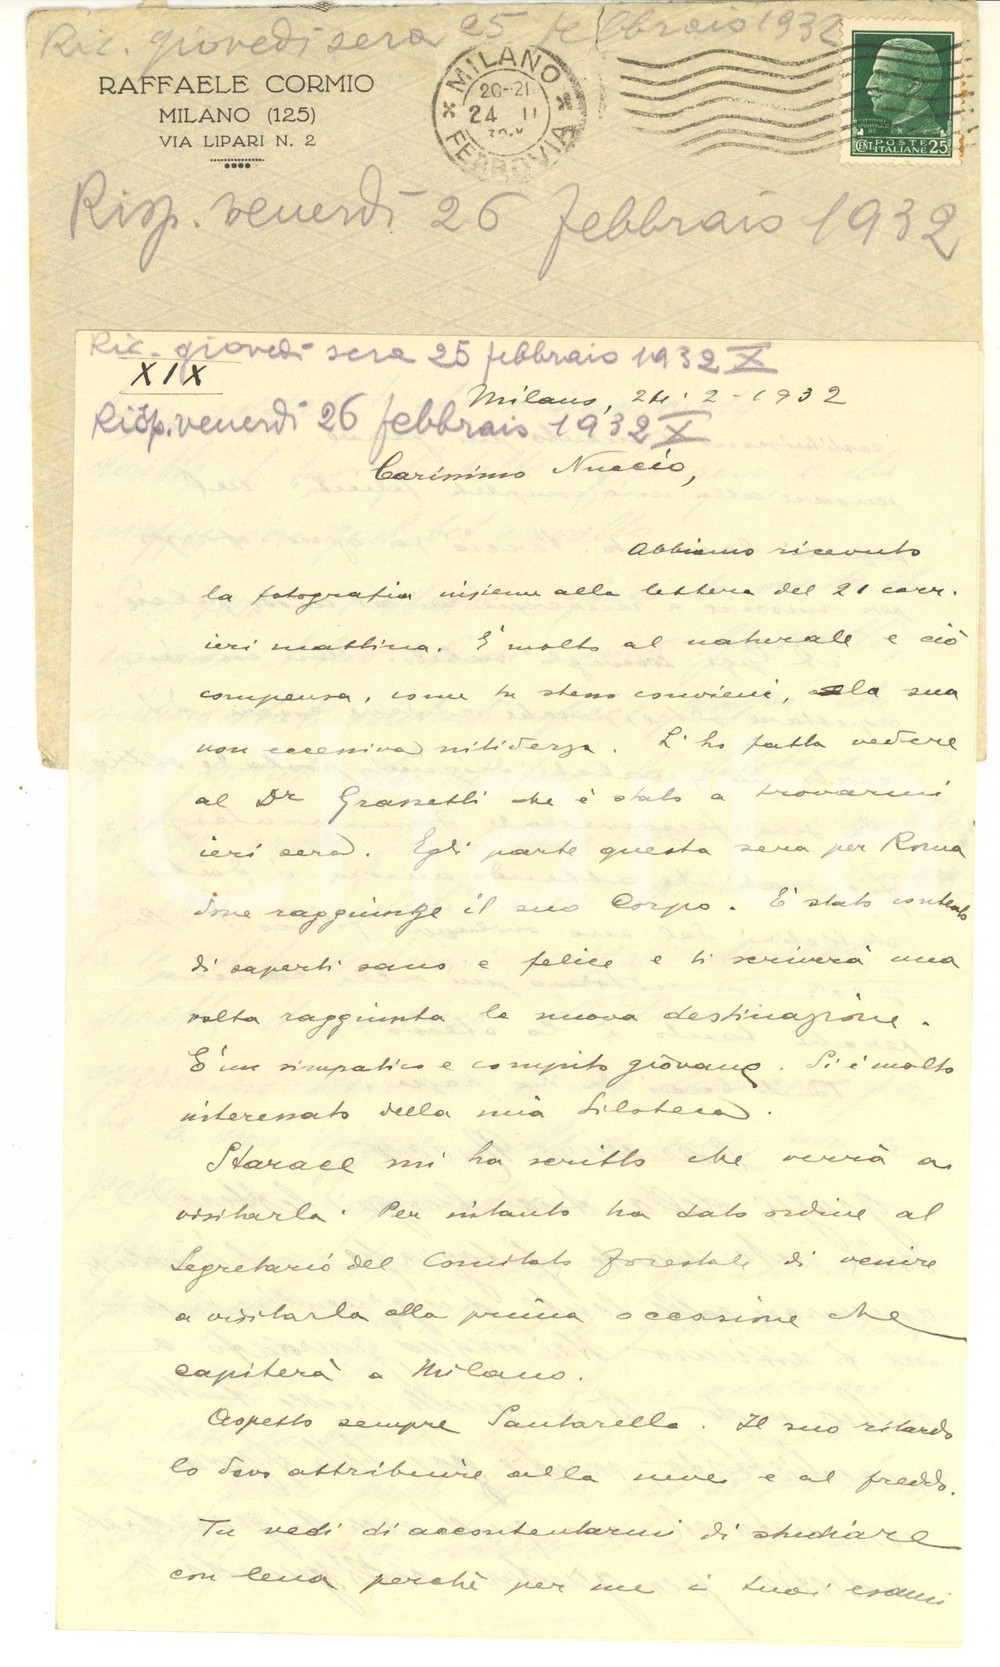 Ric. giovedì sera 25 febbraio 1932
RAFFAELE CORMIO
MILANO (125)
VIA LIPARI N. 2
MILANO
20-21
24 II
FERROVIA
POSTE
CENT. ITALIANE 25
Risp. venerdì 26 febbraio 1932
Ric. giovedì sera 25 febbraio 1932 X
XIX
Milano, 24-2-1932
Risp. venerdì 26 febbraio 1932 X
Carissimo Nuccio,
Abbiamo ricevuto
la fotografia insieme alla lettera del 21 corr.
ieri mattina. È molto al naturale e ciò
compensa, come tu stesso convieni, la sua
non eccessiva nitidezza. L'ho fatta vedere
al Dr Grassetti che è stato a trovarmi
ieri sera. Egli parte questa sera per Roma
dove raggiunge il suo Corpo. È stato contento
di saperti sano e felice e ti scriverà una
volta raggiunta la nuova destinazione.
È un simpatico e compito giovane. Si è molto
interessato della mia Xiloteca.
Starace mi ha scritto che verrà a
visitarla. Per intanto ha dato ordine al
Segretario del Comitato forestale di venire
a visitarla alla prima occasione che
capiterà a Milano.
Aspetto sempre Santarella. Il suo ritardo
lo devo attribuire alla neve e al freddo.
Tu vedi di accontentarmi di studiare
con lena perchè per me i tuoi esami